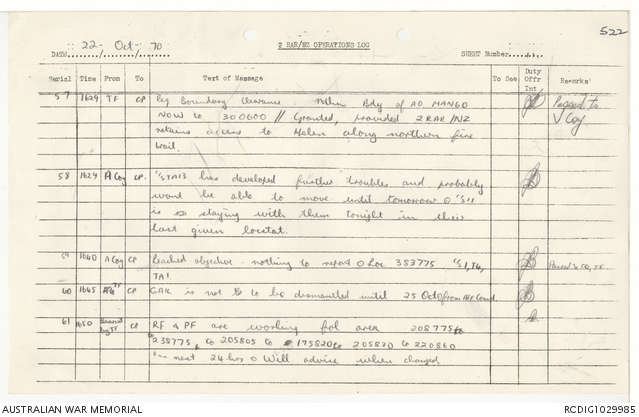 522
DATE 22 / Oct / 70 2 RAR/NZ OPERATIONS LOG SHEET Number
Serial Time From To Text of Message To See Duty Offr Int Remarks
57 1629 TF CP Req Boundary Clearance Nthn Bdy of AO MANGO Passed to
NOW to 300600 // Granted, provided 2 RAR/NZ V Coy
retains access to Helen along northern fire
trail.
58 1629 A Coy CP. has developed further troubles and probably
wont be able to move until tomorrow 0 'S11
is staying with them tonight in their
last given locstat.
59 1640 A Coy CP Reached objective - nothing to report 0 Loc 353775 'S1, T4,
TA1
60 1645 CP CAR is not to be dismantled until 25 Oct
61 1650 CP RF & PF are working fol area 208775 to
238775, to 205805 to 175820 to 205820 to 220860
next 24 hrs 0 Will advise when changed.
AUSTRALIAN WAR MEMORIAL RCDIG1029985